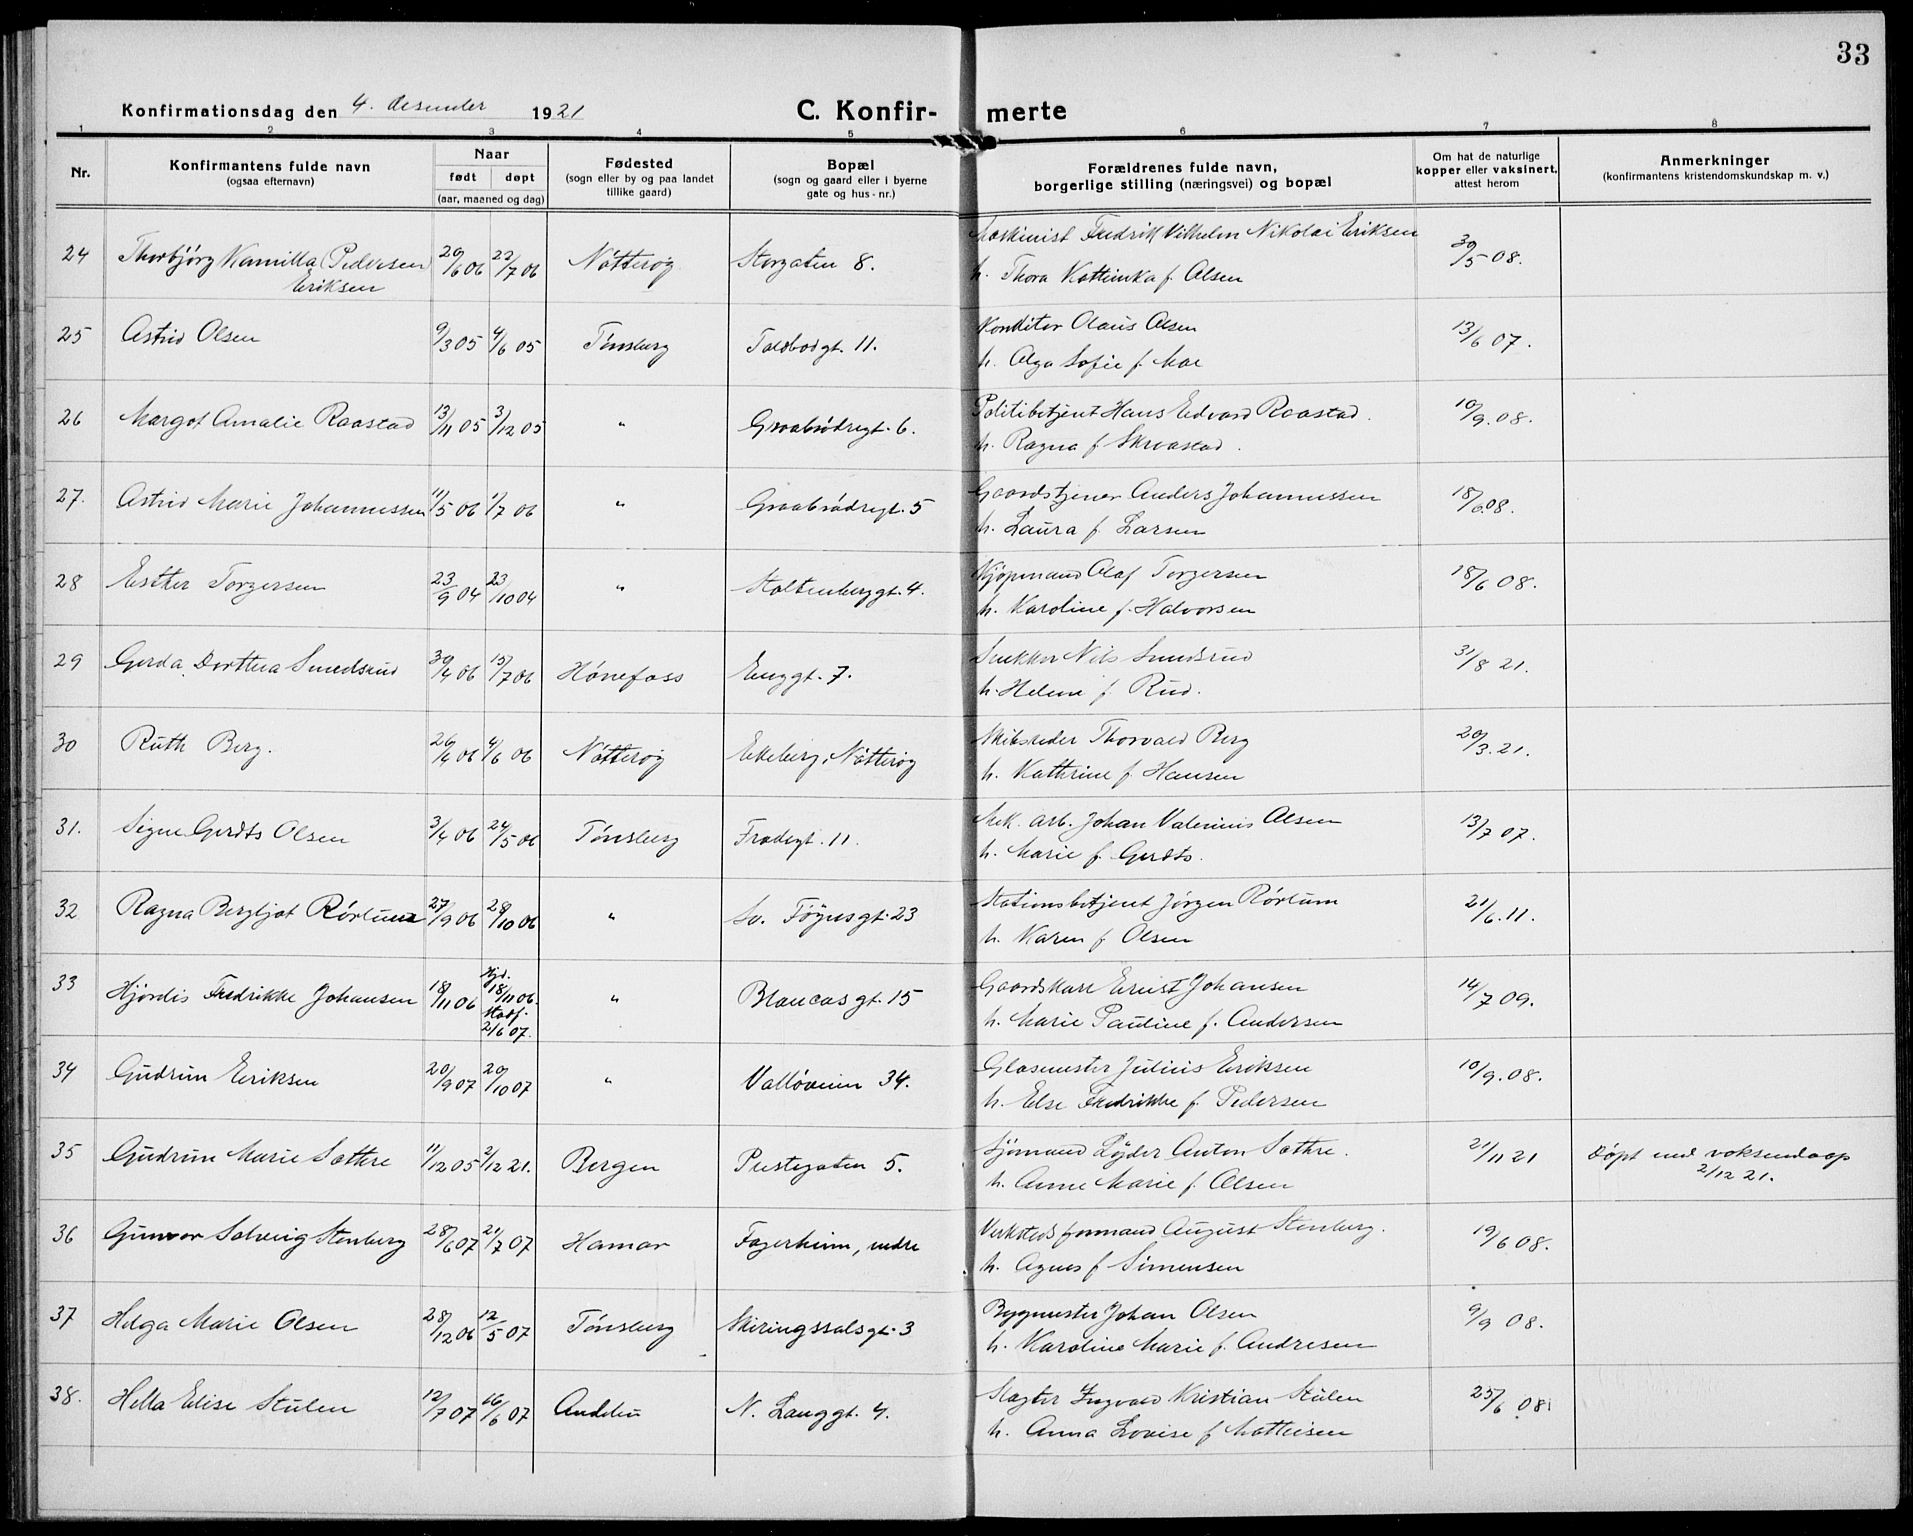 33
Konfirmationsdag den 4. desember 1921
C. Konfir- merte
1 2 3 4 5 6 7 8
Nr.
Konfirmantens fulde navn
(ogsaa efternavn)
Naar
født døpt
(aar, maaned og dag)
Fødested
(sogn eller by og paa landet
tillike gaard)
Bopæl
(sogn og gaard eller i byerne
gate og hus-nr.)
Forældrenes fulde navn,
borgerlige stilling (næringsvei) og bopæl
Om hat de naturlige
kopper eller vaksinert,
attest herom
Anmerkninger
(konfirmantens kristendomskundskap m. v.)
24 Thorbjørg Kamilla (Pedersen) 20/6 06 22/7 06 Nøtterøy Storgaten 8. Maskinist Fredrik Vilhelm Nikolai Eriksen 30/5 08.
Eriksen h. Thora Kattinka f. Olsen
25 Astrid Olsen 9/3 05 4/6 05 Tønsberg Toldbodgt. 11. Konditor Olaus Olsen 13/6 07.
h. Olga Sofie f. Moe
26 Margot Amalie Raastad 13/11 05 3/12 05 " Graabrødregt. 6. Politibetjent Hans Edvard Raastad. 10/9. 08.
h. Ragna f.
27. Astrid Marie Johannessen 11/5 06 1/7 06 " Graabrødregt. 5 Gaardstjener Anders Johannessen 18/6 08.
h. Laura f. Larsen
28 Esther Torgersen 23/9 04 23/10 04 " Stoltenberggt. 4. Kjøpmand Olaf Torgersen 18/6 08.
h. Karoline f. Halvorsen
29 Gerda Dorthea Smedsrud 30/4 06 15/7 06 Hønefoss Enggt. 7. Snekker Nils Smedsrud 31/8 21.
h. Helene f. Rud.
30 Ruth Berg. 26/4 06 4/6 06 Nøtterøy Ekeberg, Nøtterøy Skibsreder Thorvald Berg 20/3. 21.
h. Kathrine f. Hansen
31. Signe Gerdts Olsen 3/4 06 24/5 06 Tønsberg Frodegt. 11. Mek. arb. Johan Valerius Olsen 13/7 07.
h. Marie f. Gerdts.
32 Ragna Bergljot Rørtum 27/9 06 28/10 06 " Sv. Føynsgt. 23 Stationsbetjent Jørgen Rørtum 21/6. 11.
h. Karen f. Olsen
33 Hjørdis Fredrikke Johansen 18/11 06 Hjd. 18/11 06. stadf. 2/6 07. " Blancasgt. 15 Gaardskarl Ernst Johansen 14/7 09.
h. Marie Pauline f. Andersen
34 Gudrun Eriksen 20/9 07 20/10 07 " Valløveien 34. Glasmester Julius Eriksen 10/9. 08.
h. Else Fredrikke f. Pedersen
35 Gudrun Marie Sæthre 11/12 05 2/12 21. Bergen Prestegaten 5. Sjømand Løjder Anton Sæthre. 21/11 21 Døpt ved voksendaap
h. Anne Marie f. Olsen 2/12 21.
36 Gunvor Solveig Stenberg 28/6 07 21/7 07 Hamar Fagerheim, nedre Verkstedsformand August Stenberg. 19/6 08.
h. Agnes f. Simensen
37 Helga Marie Olsen 28/12 06 12/5 07 Tønsberg Skiringssalsgt. 3 Bygmester Johan Olsen 9/9 08.
h. Karoline Marie f. Andresen
38. Hella Elise Stulen 12/7 07 16/6 07 Andebu N. Langgt. 4. Slagter Ingvald Kristian Stulen 25/6 08
h. Anna Lovise f. Mathisen